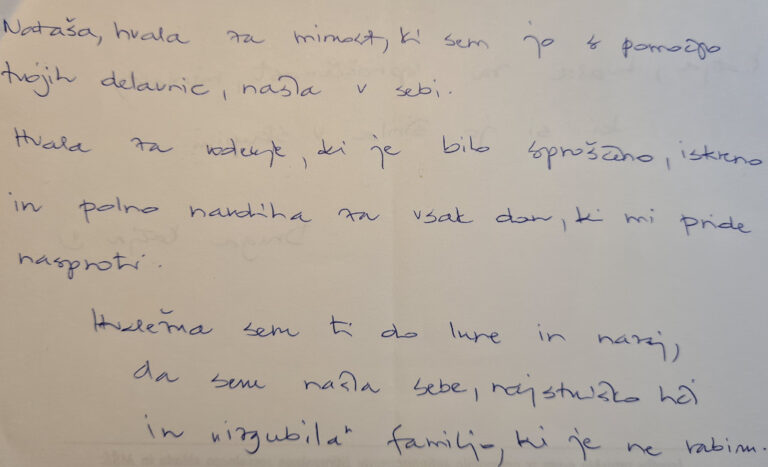 Nataša, hvala za mirnost, ki sem jo s pomočjo
tvojih delavnic, našla v sebi.
Hvala za vodenje, ki je bilo sproščeno, iskreno
in polno navdiha za vsak dan, ki mi pride
nasproti.
Hvaležna sem ti do lune in nazaj,
da sem našla sebe, najstniško hči
in "izgubila" familijo, ki je ne rabim.